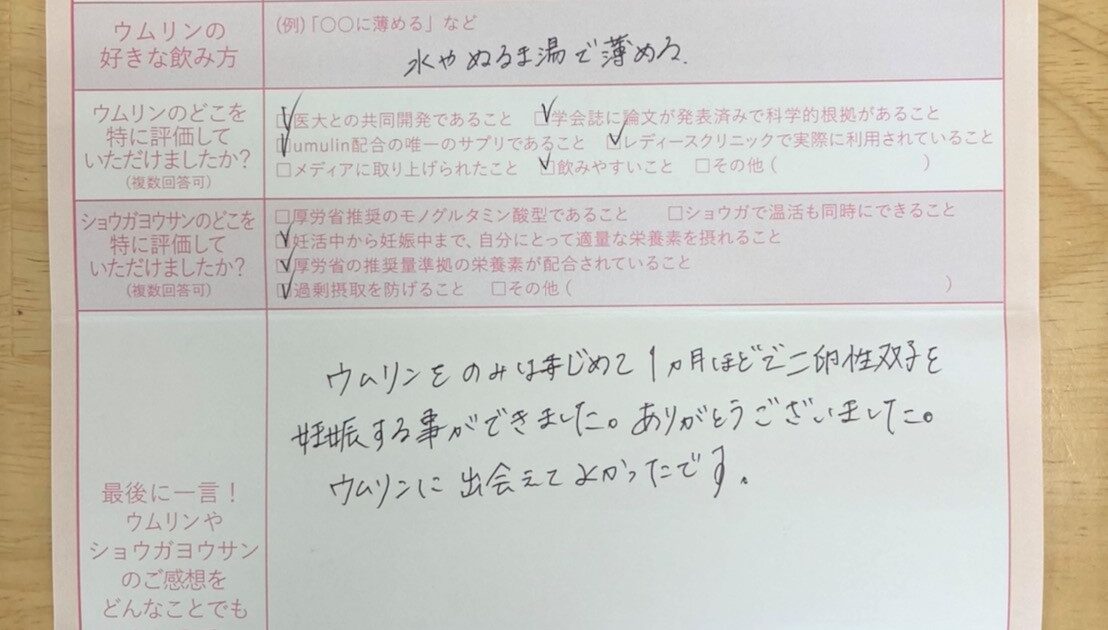 ウムリンの
好きな飲み方
(例)「〇〇に薄める」など
水やぬるま湯で薄める.
ウムリンのどこを
特に評価して
いただけましたか?
(複数回答可)
☑医大との共同開発であること ☑学会誌に論文が発表済みで科学的根拠があること
☑umulin配合の唯一のサプリであること ☑レディースクリニックで実際に利用されていること
□メディアに取り上げられたこと ☑飲みやすいこと □その他 ( )
ショウガヨウサンのどこを
特に評価して
いただけましたか?
(複数回答可)
□厚労省推奨のモノグルタミン酸型であること □ショウガで温活も同時にできること
☑妊活中から妊娠中まで、自分にとって適量な栄養素を摂れること
☑厚労省の推奨量準拠の栄養素が配合されていること
☑過剰摂取を防げること □その他 ( )
最後に一言!
ウムリンや
ショウガヨウサン
のご感想を
どんなことでも
ウムリンをのみはじめて1ヵ月ほどで二卵性双子を
妊娠する事ができました。ありがとうございました。
ウムリンに出会えてよかったです。